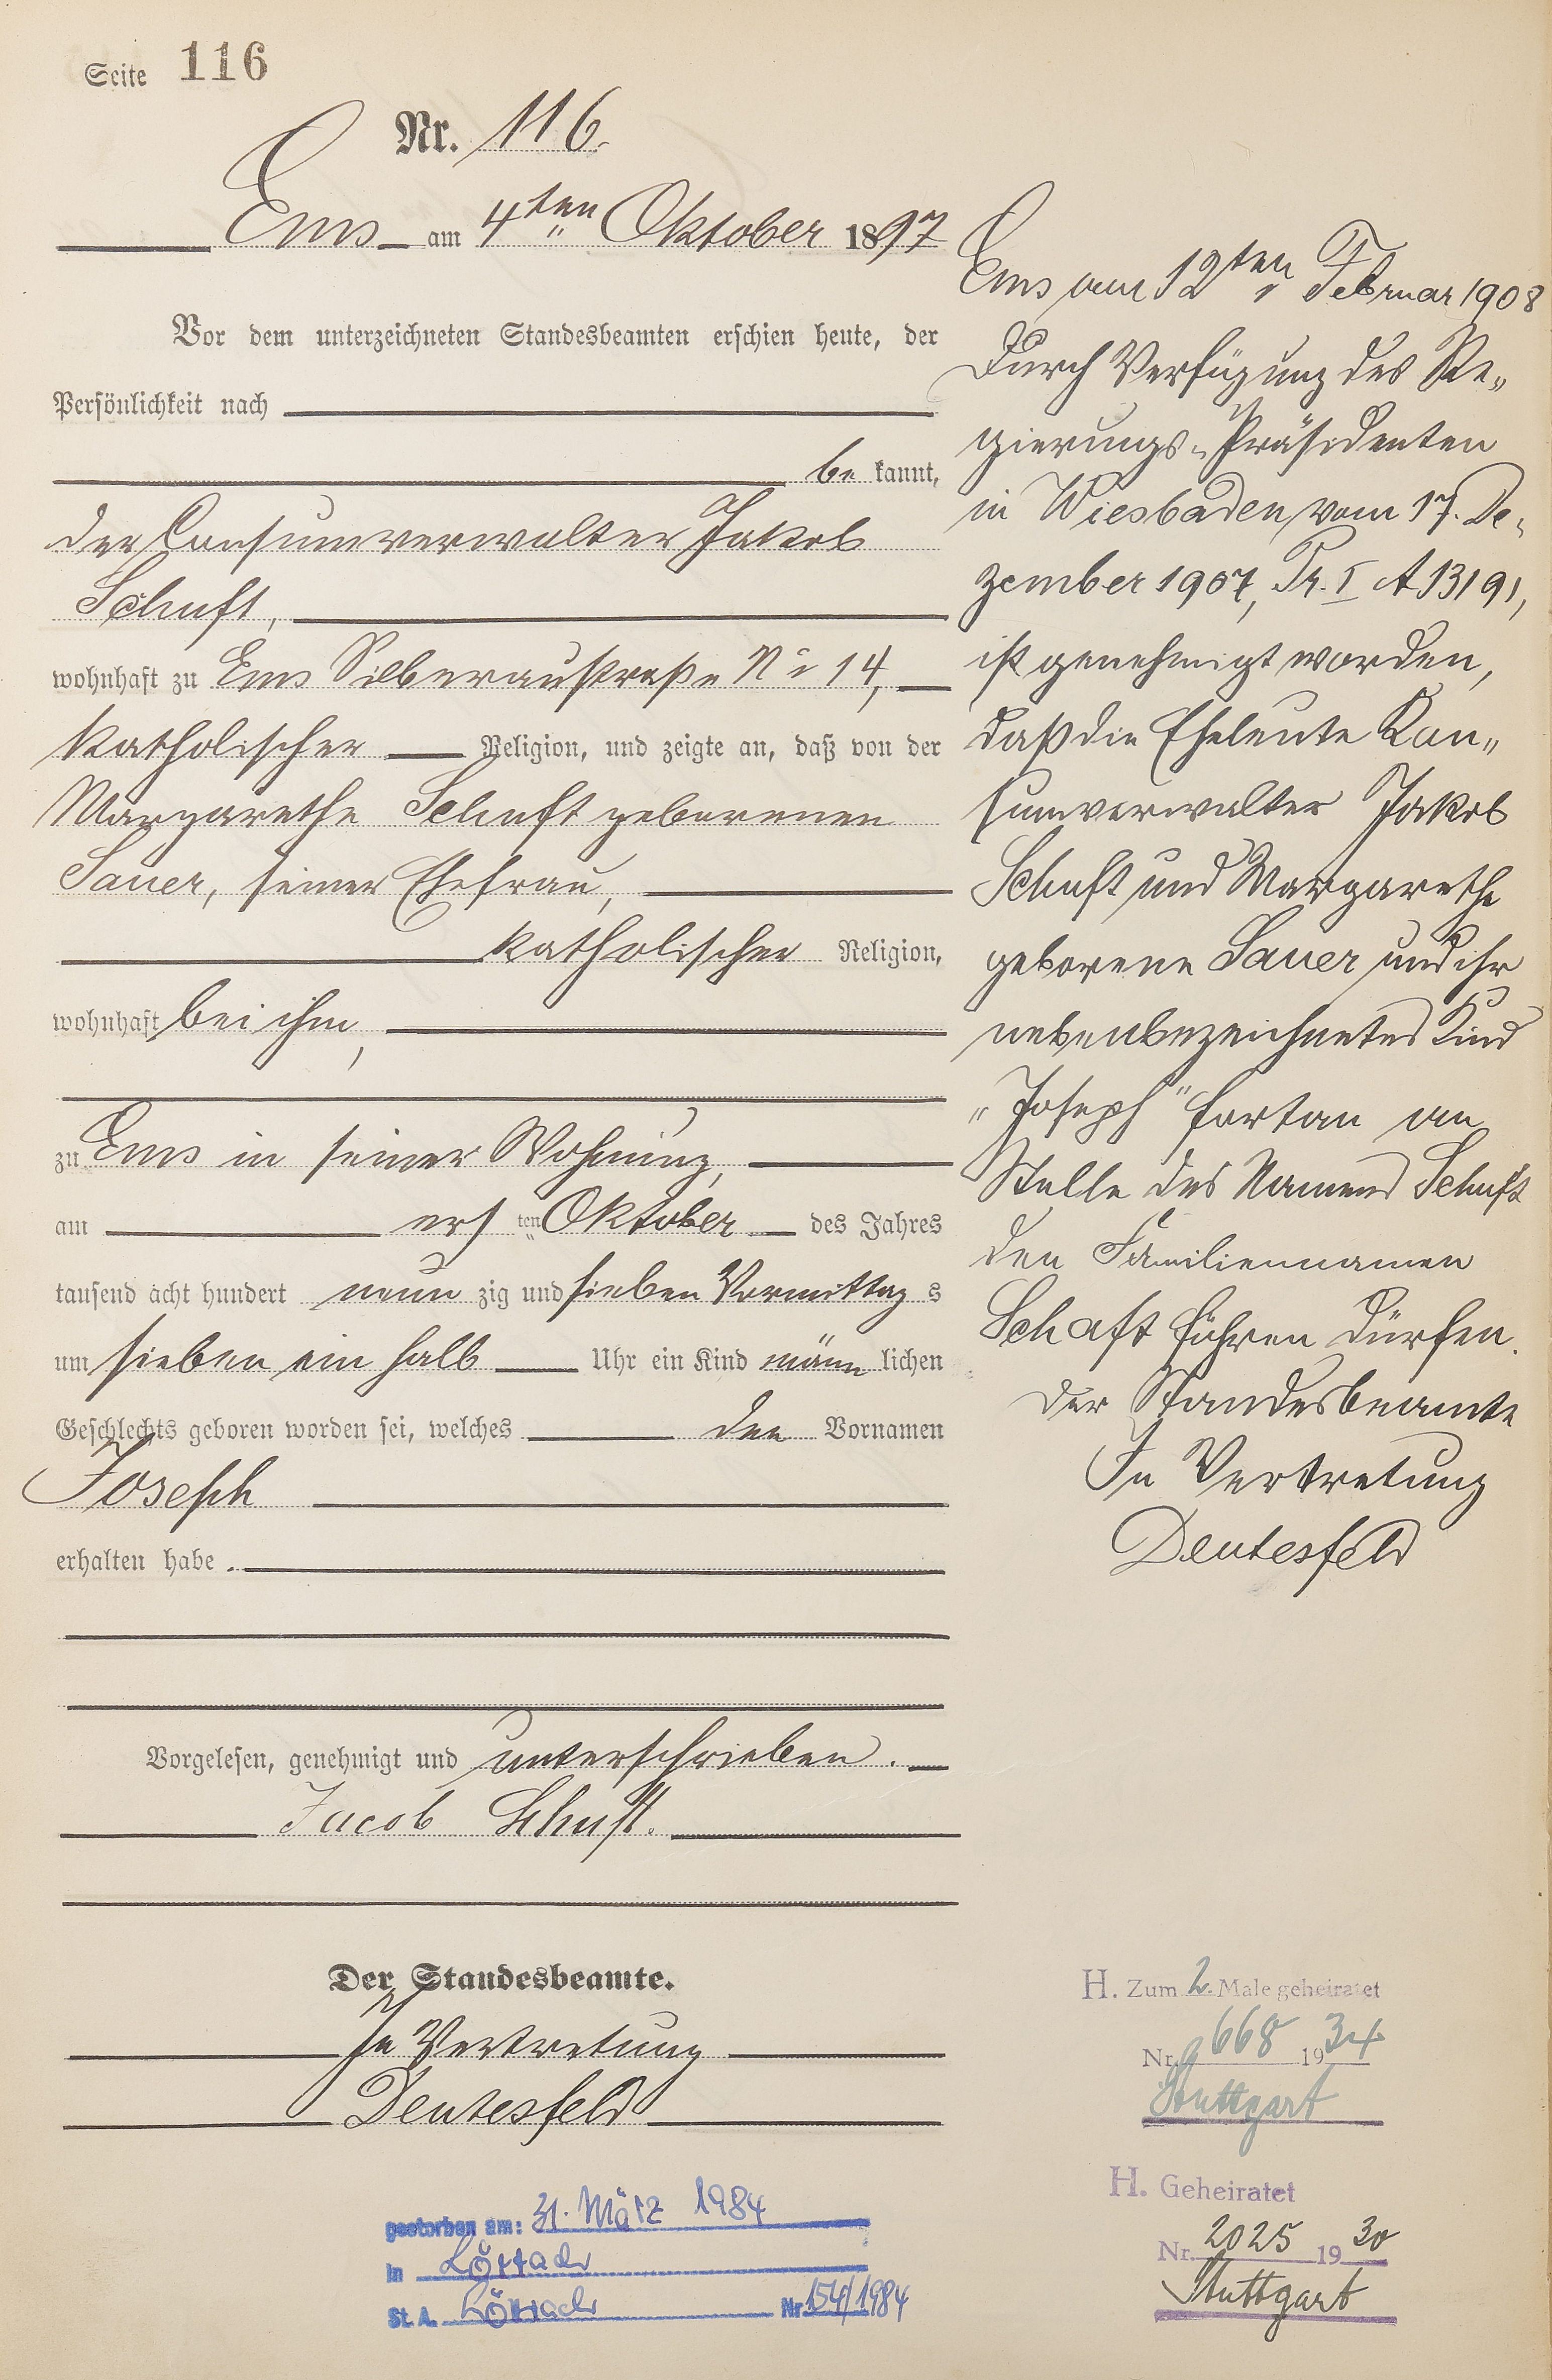 Seite 116
Nr. 116.
Ems am 4ten Oktober 1897
Vor dem unterzeichneten Standesbeamten erschien heute, der
Persönlichkeit nach
bekannt,
der Consumverwalter Jakob
Schuft,
wohnhaft zu Ems Silberaustraße No 14,
katholischer Religion, und zeigte an, daß von der
Margarethe Schuft geborenen
Sauer, seiner Ehefrau,
katholischer Religion,
wohnhaft bei ihm,
zu Ems in seiner Wohnung,
am ersten Oktober des Jahres
tausend acht hundert neunzig und sieben Vormittags
um sieben ein halb Uhr ein Kind männlichen
Geschlechts geboren worden sei, welches den Vornamen
Joseph
erhalten habe.
Vorgelesen, genehmigt und unterschrieben.
Jacob Schuft.
Der Standesbeamte.
In Vertretung
Deutesfeld
gestorben am: 31. März 1984
in Lörrach
St. A. Lörrach Nr. 154/1984
Ems am 12ten Februar 1908
Durch Verfügung des Re„
gierungs-Präsidenten
in Wiesbaden vom 17. De„
zember 1907, Pr. I A 13191,
ist genehmigt worden,
daß die Eheleute Kon„
sumverwalter Jakob
Schuft und Margarethe
geborene Sauer und ihr
nebenbezeichnetes Kind
„Joseph" fortan an
Stelle des Namens Schuft
den Familiennamen
Schaft führen dürfen.
Der Standesbeamte
In Vertretung
Deutesfeld
H. Zum 2. Male geheiratet
Nr. 668 1934
Stuttgart
H. Geheiratet
Nr. 2025 1930
Stuttgart